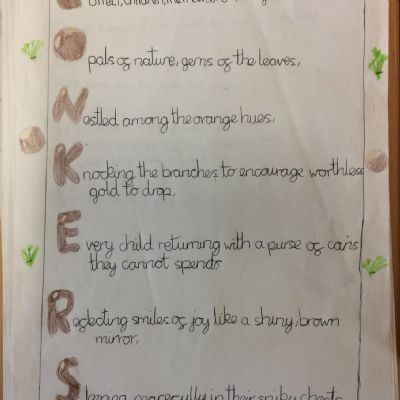 children, their
Opals of nature, gems of the leaves,
Nestled among the orange hues,
Knocking the branches to encourage worthless
gold to drop,
Every child returning with a purse of coins
they cannot spend,
Reflecting smiles of joy like a shiny, brown
mirror,
Sleeping peacefully in their spiky chests